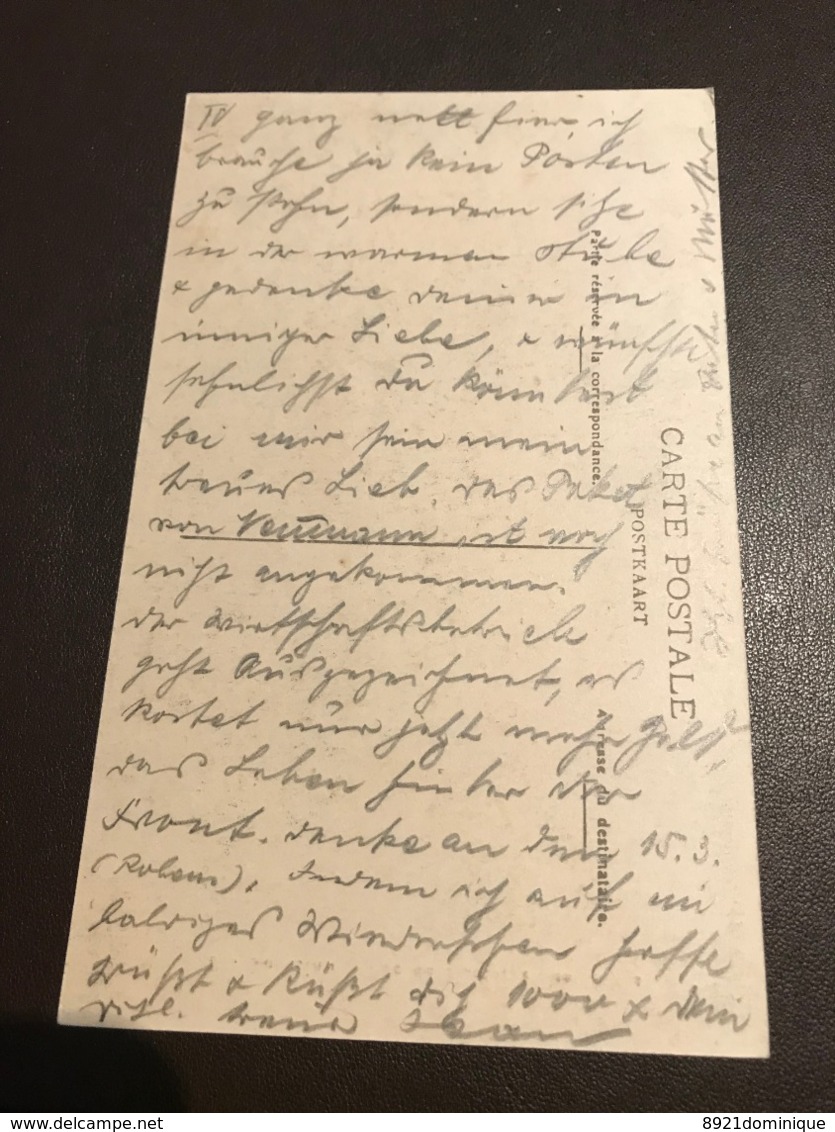 IV ganz nett hier, ich
brauche ja kein Posten
zu stehn, sondern sitze
in der warmen Stube
& gedenke deiner in
inniger Liebe, & wünschte
sehnlichst du könntest
bei mir sein mein
treues Lieb. das Paket
von Neumann ist noch
nicht angekommen.
der Wirtschaftsbetrieb
geht Ausgezeichnet, es
kostet nur jetzt mehr Geld,
das Leben hinter der
Front. denke an den 15.3.
Indem ich auf ein
baldiges Wiedersehen hoffe
Grüßt & Küßt dich 1000 x dein
treuer
CARTE POSTALE
POSTKAART
Partie réservée à la correspondance.
Adresse du destinataire.
delcampe.net
8921dominique